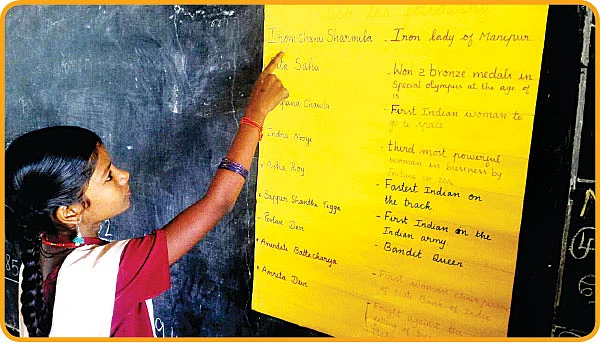 Irom Chanu Sharmila - Iron lady of Manipur
ita Sahu - Won 2 bronze medals in
Special olympics at the age of
15
pana Chawla - First Indian woman to
go to space
Indra Nooyi - third most powerful
woman in business by
fortune in 2014
Asha Roy - Fastest Indian on
the track
Sappper Shanthi Tigga - First Indian on the
Indian army
Poolan Devi - Bandit Queen
Arundati Battacharya - First woman chair
of State Bank of India
Amrita Devi - Fought against the
of
85
2